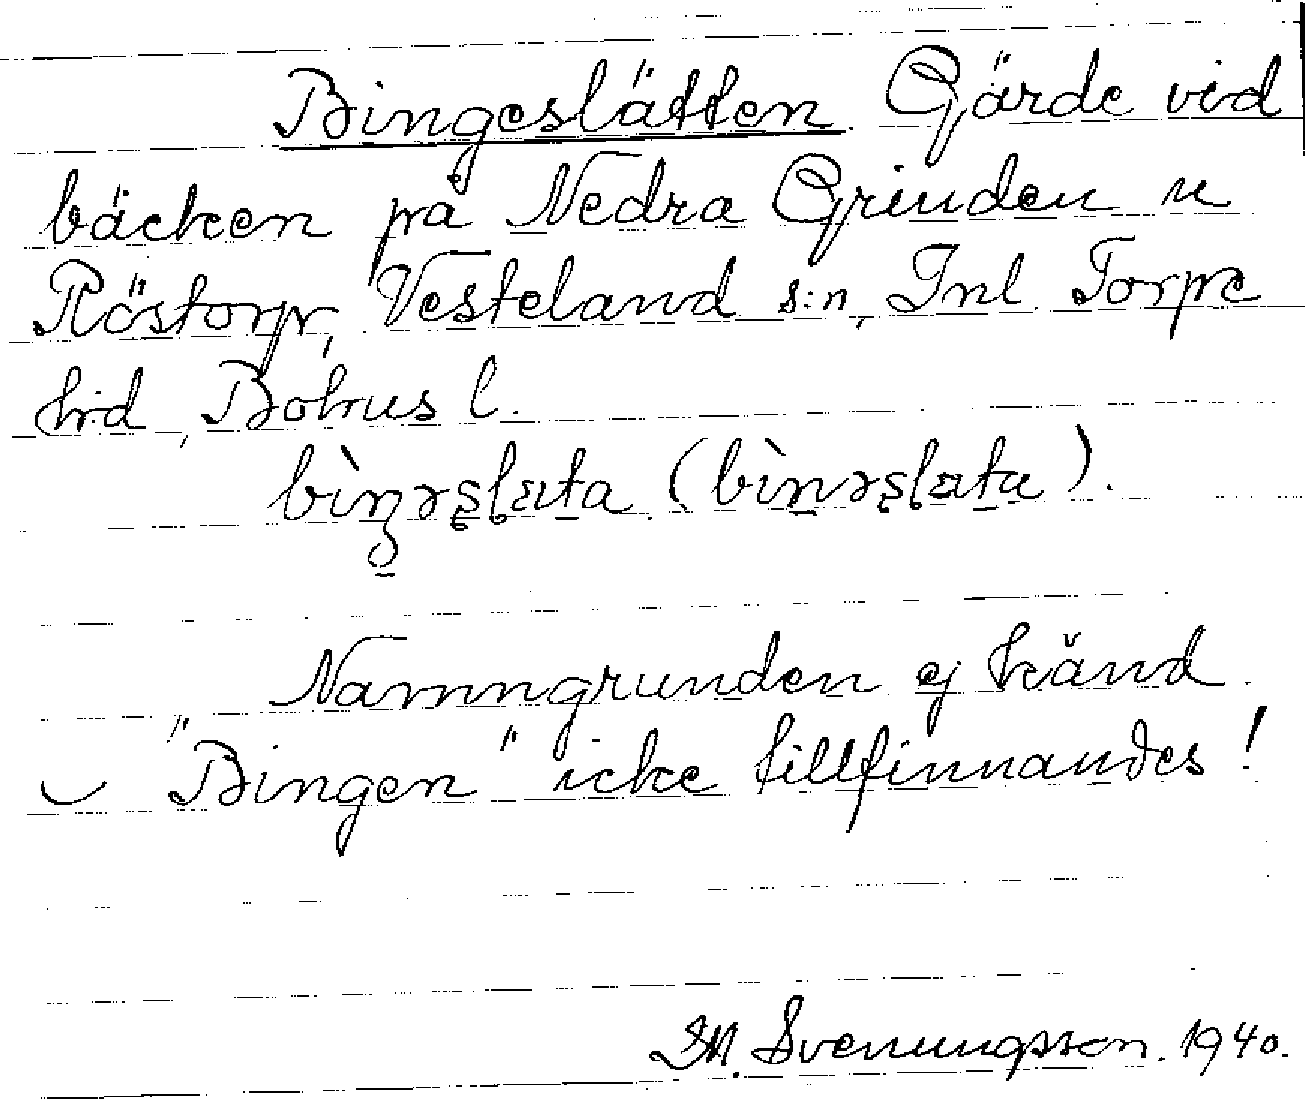 Bingeslätten. Gärde vid
bäcken på Nedra Grinden u
Röstorp, Vesteland s:n, Inl Torpe
hd, Bohus l.
Namngrunden ej känd.
"Bingen" icke tillfinnandes!
Svenungsson. 1940.